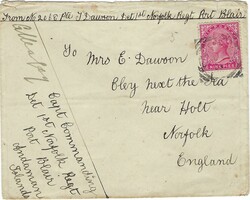 From No 2018 Pte J Dawson Det 1st Norfolk Regt Port Blair
To Mrs E Dawson
Cley next the Sea
near Holt
Norfolk
England
Capt Commanding
Det 1st Norfolk Regt
Port Blair
Andaman
Islands